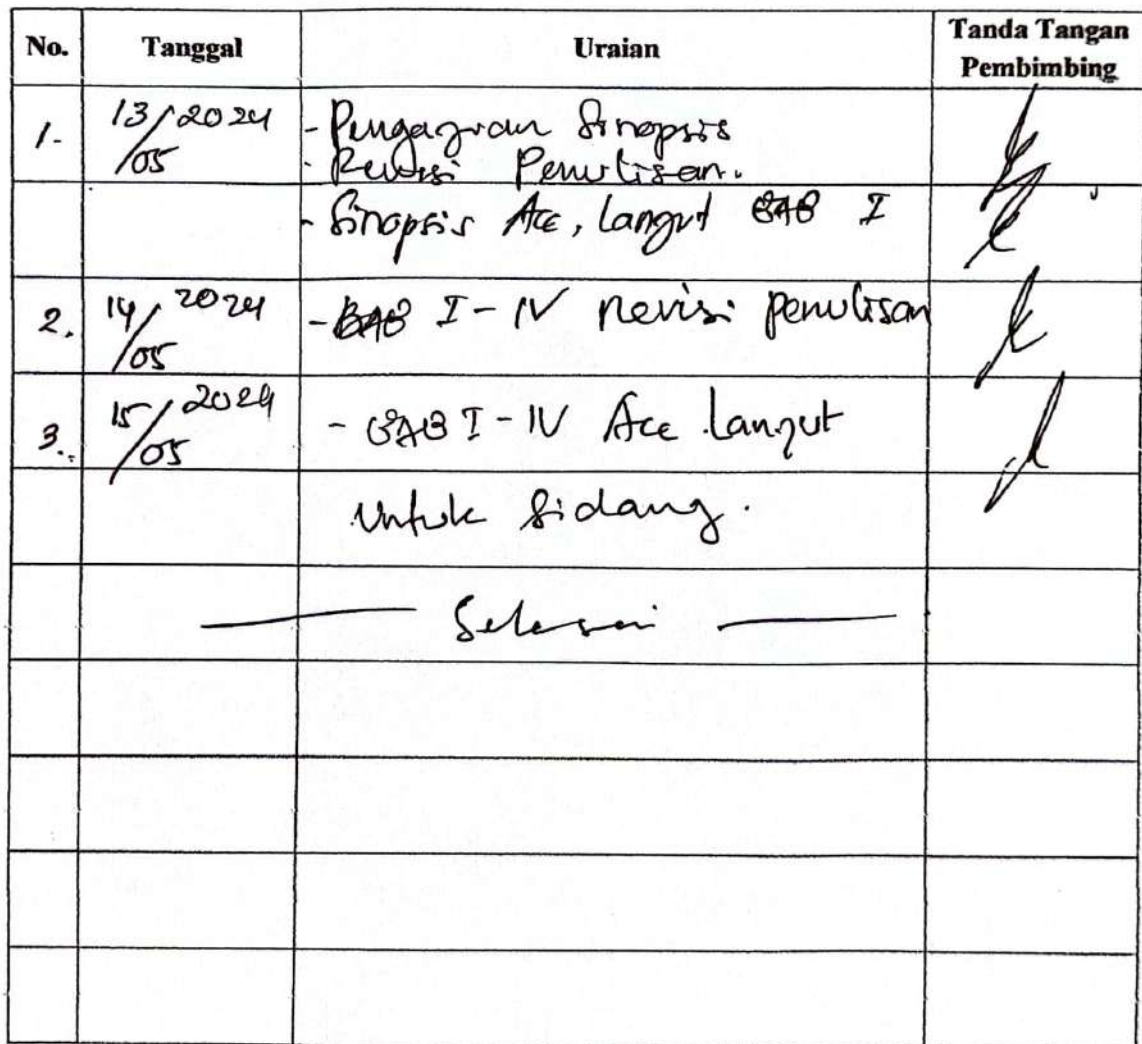 No. Tanggal Uraian Tanda Tangan
Pembimbing
1. 13/05 2024 - Pengajuan Sinopsis
- Revisi Penulisan.
- Sinopsis Acc, Lanjut BAB I
2. 14/05 2024 - BAB I - IV Revisi penulisan
3. 15/05 2024 - BAB I - IV Acc Lanjut
untuk Sidang.
Selesai